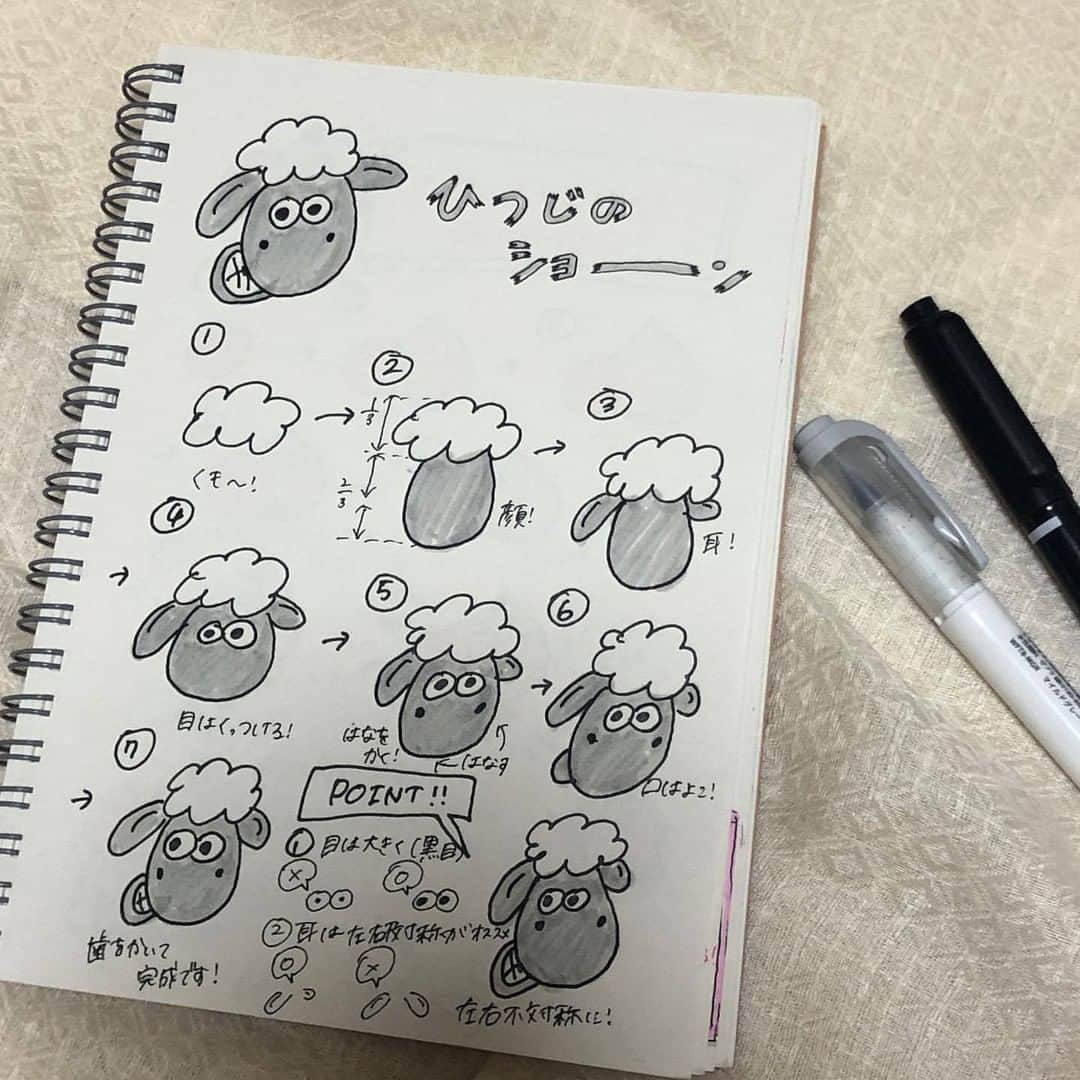 ひつじの
ショーン
①
くも〜!
②
1/3
2/3
顔!
③
耳!
④
目はくっつける!
⑤
はなを
かく!
はなす
⑥
口はよこ!
⑦
歯をかいて
完成です!
POINT!!
① 目は大きく(黒目)
× ○
② 耳は左右対称がオススメ
○ ×
左右不対称に!
マイルドグレー